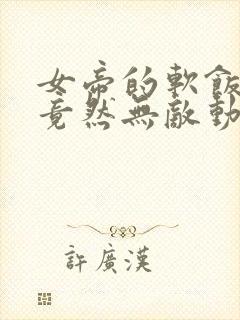 女帝的軟飯
竟然無敵動
許廣漢